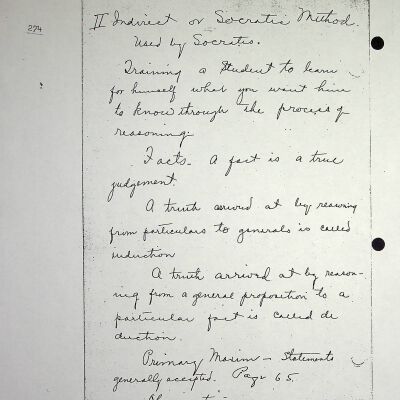 274
II Indirect or Socratic Method.
Used by Socrates.
Training a Student to learn
for himself what you want him
to know through the process of
reasoning.
Facts - A fact is a true
judgement.
A truth arrived at by reasoning
from particulars to generals is called
induction
A truth arrived at by reason-
ing from a general proposition to a
particular fact is called de
duction.
Primary Maxim - Statements
generally accepted. Page 65.